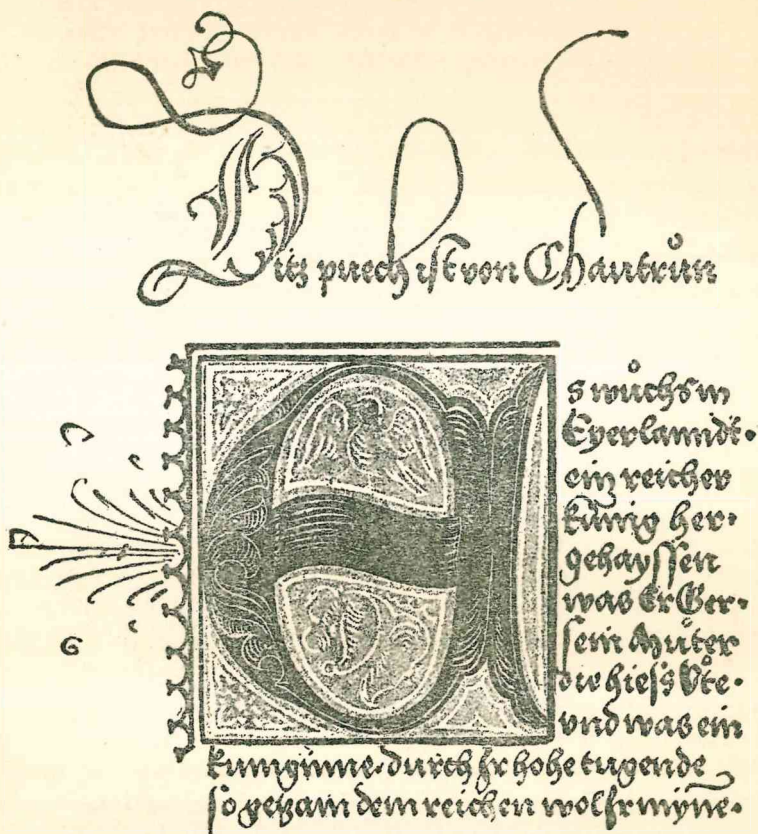 Ditz puech ist von Chautrůn
Es wůchs in
Eyerlanndt.
ein reicher
kŭnig her.
gehayssen
was Er Ger.
sein Můter
die hiess Ůte.
vnd was ein
kuniginne. durch Ir hohe tugende
so gezam dem reichen wol Ir myne.